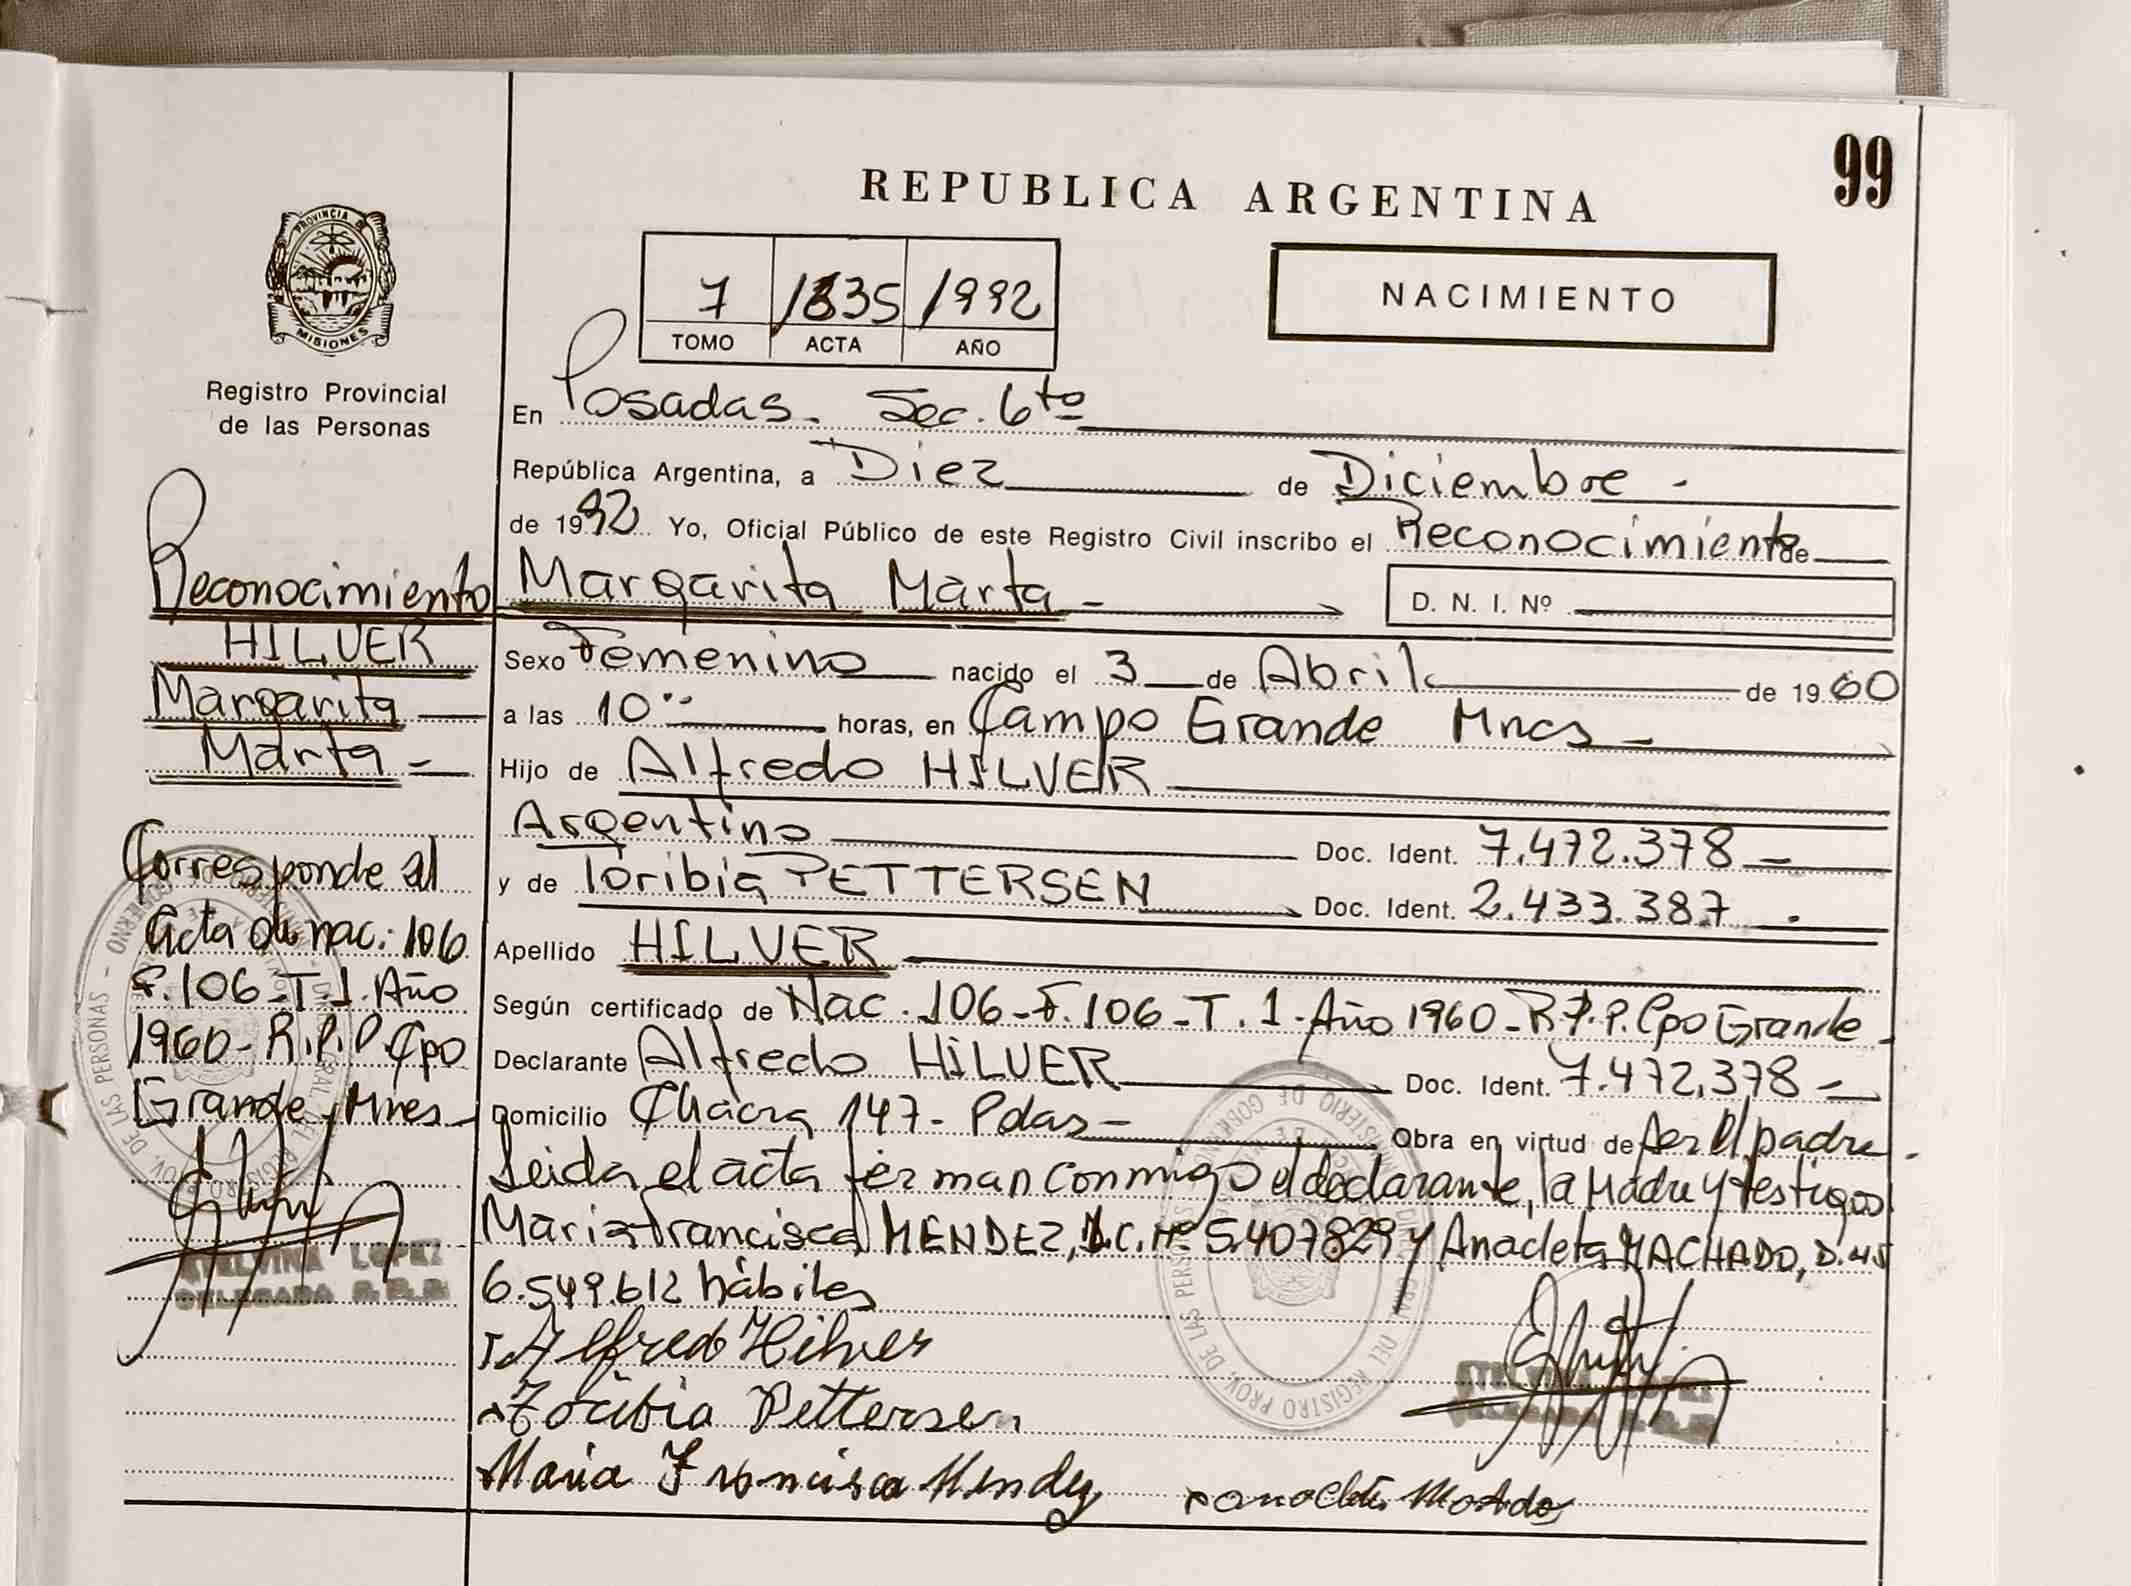 99
REPUBLICA ARGENTINA
7 1835 1992
TOMO ACTA AÑO
NACIMIENTO
PROVINCIA DE
MISIONES
Registro Provincial
de las Personas
Reconocimiento
HILVER
Margarita
Marta
Corresponde al
Acta de nac: 106
F.106-T.1. Año
1960- R.P.P. Cpo
Grande, Mnes
LOPEZ
En Posadas. Sec. 6ta
República Argentina, a Diez de Diciembre -
de 1992 Yo, Oficial Público de este Registro Civil inscribo el Reconocimiento de
Margarita Marta - D. N. I. Nº
Sexo Femenino nacido el 3 de Abril de 1960
a las 10 horas, en Campo Grande Mnes -
Hijo de Alfredo HILVER
Argentino Doc. Ident. 7.472.378 -
y de Toribia PETTERSEN Doc. Ident. 2.433.387 .
Apellido HILVER
Según certificado de Nac. 106-F.106-T.1-Año 1960-R.P.P. Cpo Grande -
Declarante Alfredo HILVER Doc. Ident. 7.472.378 -
Domicilio Chacra 147- Pdas - Obra en virtud de ser el padre -
Leida el acta firman conmigo el declarante, la Madre y testigos
Maria Francisca MENDEZ, L.C. Nº 5.407829 y Anacleta MACHADO, D.
6.549.612 hábiles
Alfredo Hilver
Toribia Pettersen
Maria Francisca Mendez